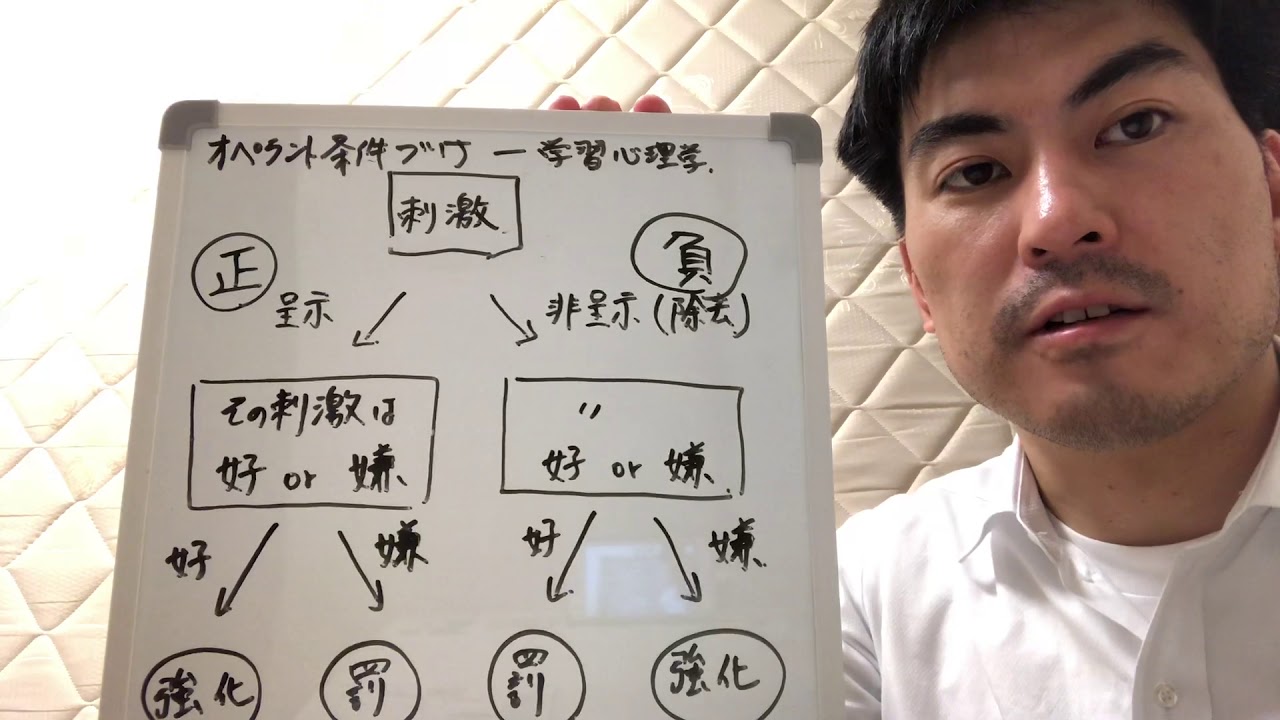 オペラント条件づけ ー学習心理学.
刺激
正
負
呈示
非呈示(除去)
その刺激は
好 or 嫌
〃
好 or 嫌
好
嫌
好
嫌
強化
罰
罰
強化